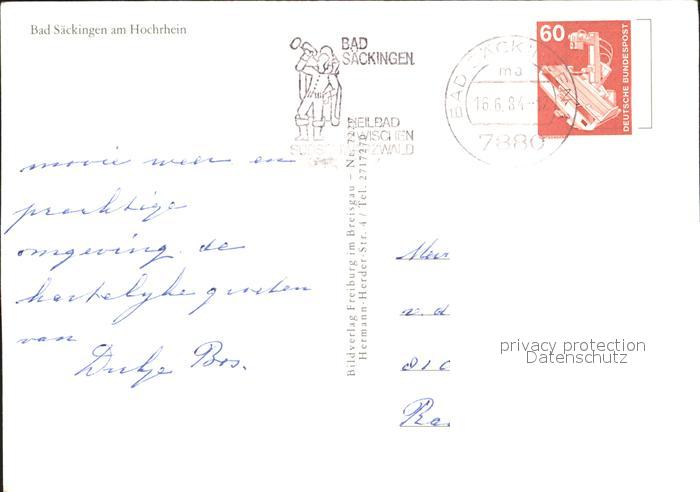 Bad Säckingen am Hochrhein
BAD
SÄCKINGEN
HEILBAD
ZWISCHEN
BAD SÄCKINGEN
ma
16.6.84
7880
60
DEUTSCHE BUNDESPOST
mooie weer en
prachtige
omgeving. de
hartelyke groeten
van
Bos.
Bildverlag Freiburg im Breisgau – Nr.
Hermann-Herder-Str. 4 / Tel. 2717270
v. d
privacy protection
Datenschutz